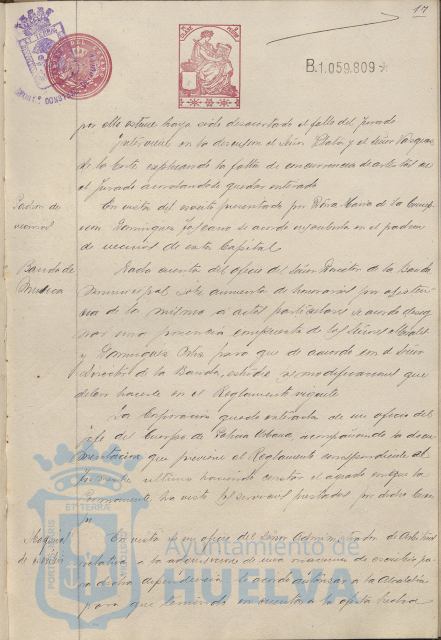 17
B.1.059.809
por ello estime haya sido desacertado el fallo del Jurado
Intervienen en la discusion el Señor Plata y el Señor Vazquez
de la Corte explicando la falta de concurrencia de artistas
el Jurado acordandose quedar enterado
Padron de
vecinos
En vista del escrito presentado por Doña Maria de la Concep
cion Dominguez se acordó en el padron
de vecinos de esta Capital
Banda de
Musica
Dada cuenta del oficio del Señor Director de la Banda
municipal sobre aumento de honorarios por asisten
cia de la misma a actos particulares se acordó desig
nar una ponencia compuesta de los Señores
y Dominguez para que de acuerdo con el Señor
Director de la Banda, estudie las modificaciones que
deban hacerse en el Reglamento vigente
La Corporación quedó enterada de un oficio del
Jefe del Cuerpo de Policia Urbana, acompañando la docu
mentación que previene el Reglamento correspondiente al
ultimo haciendo constar el agrado con que la
Permanente ha visto los servicios prestados por dicho Cuer
po
Maquina
de escribir
En vista de un oficio del Señor Administrador de Arbitrios
relativo a la adquisicion de una maquina de escribir pa
ra dicha dependencia se acordó autorizar a la Alcaldia
para que teniendo en cuenta la oferta hecha
Ayuntamiento de
HUELVA